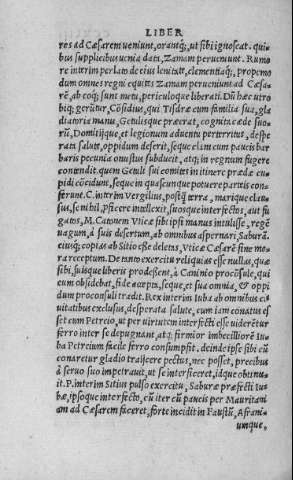 LIBER
res ad Cæsarem veniunt, orantq́; ut sibi ignoscat. qui-
bus supplicibus uenia data, Zamam perueniunt. Rumo
re interim perlato de eius lenitate, clementiaq́;, propemo
dum omnes regni equites Zamam perueniunt ad Cæsa-
rē, ab eoq́; sunt metu, periculoque liberati. Dū hæc utro
biq; gerūtur, Cōsidius, qui Tisdræ cum familia sua, gla
diatoria manus, Getulisque præerat, cognita cæde suo-
rū, Domitijque, et legionum aduentu perterritus, despe-
rata salute, oppidum deserit, seque clam cum paucis bar
baris pecunia onustus subducit, atq; in regnum fugere
contendit. quem Getuli sui comites in itinere prædæ cu-
pidi cōcidunt, seque in quascunque potuere partes con-
ferunt. C. interim Vergilius, postq̃ terra, marique clau-
sus, se nihil ꝓficere intellexit, suosque interfectos, aut fu
gatos, M. Catonem Vticæ sibi ipsi manus intulisse, regē
uagum, à suis desertum, ab omnibus aspernari, Saburā,
eiusq́; copias ab Sitio esse deletas, Vticæ Cæsarē sine mo-
ra receptum. De tanto exercitu reliquias esse nullas, quæ
sibi, suisque liberis prodessent, à Caninio procōsule, qui
eum obsidebat, fide accepta, seque, et sua omnia, & oppi
dum proconsuli tradit. Rex interim Iuba ab omnibus ci-
uitatibus exclusus, desperata salute, cum iam conatus es
set cum Petreio, ut per uirtutem interfecti esse uiderētur
ferro inter se depugnant, atq; firmior imbecilliorē Iu-
ba Petreium facile ferro consumpsit. deinde ipse sibi cū
conaretur gladio traijcere pectus, nec posset, precibus
à seruo suo impetrauit, ut se interficeret, idque obtinu-
it. P. interim Sitius pulso exercitu, Saburæ præfecti Iu-
bæ, ipsoque interfecto, cū iter cū paucis per Mauritani
am ad Cæsarem faceret, forte incidit in Faustū, Afrani-
umque,